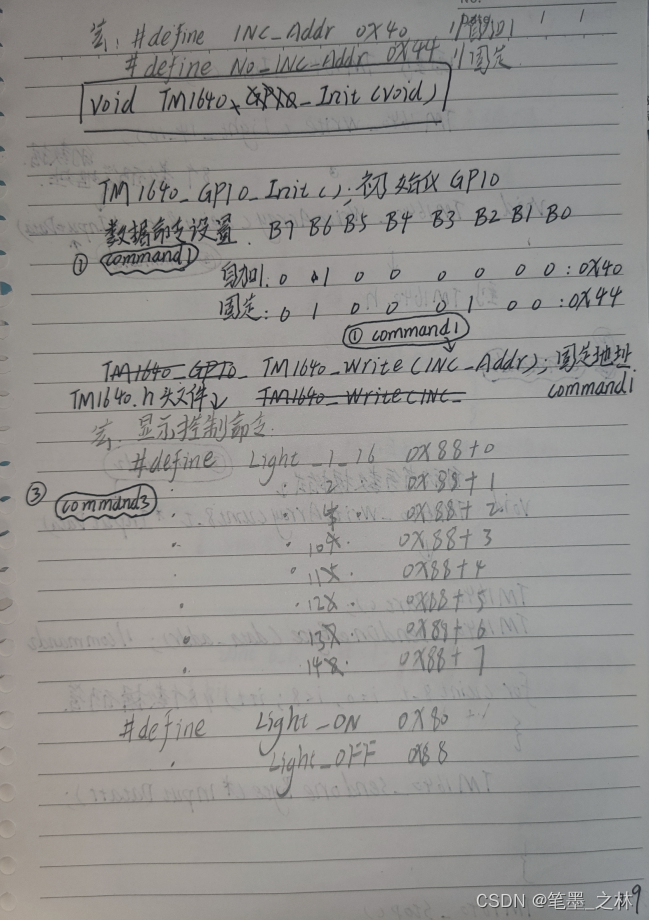 宏: #define INC_Addr 0X40 //自加1
#define No_INC_Addr 0X44 //固定
void TM1640_Init(void)
TM1640_GPIO_Init(); 初始化GPIO
数据命令设置. B7 B6 B5 B4 B3 B2 B1 B0
① command1
自加1: 0 1 0 0 0 0 0 0 : 0X40
固定: 0 1 0 0 0 1 0 0 : 0X44
① command1
TM1640_GPIO_ TM1640_Write(INC_Addr); 固定地址
TM1640.h 头文件↓ TM1640_Write(INC_ command1
宏: 显示控制命令.
#define Light_1_16 0X88+0
③ command3 2 0X88+1
4 0X88+2
10 0X88+3
11 0X88+4
12 0X88+5
13 0X89+6
14 0X88+7
#define Light_ON 0X80
Light_OFF 0X88
9
CSDN @笔墨_之林